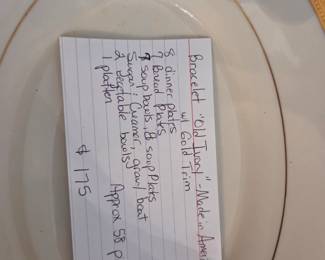 Bracelet "Old Ivory" - Made in Ameri
w/ Gold Trim
8 dinner plates
7 Bread Plates
7 soup bowls. 8 soup Plats
Sugar; Creamer, gravy boat
2 vegetable bowls
1 platter
Approx 58 p
$175